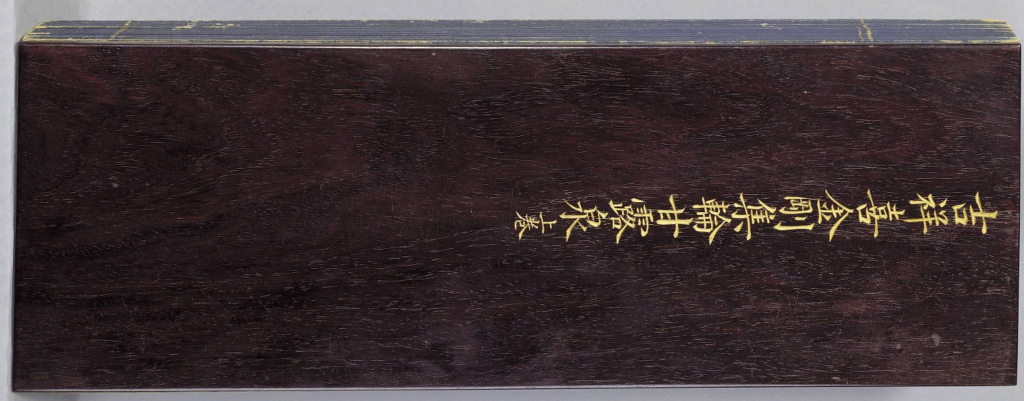 吉祥喜金剛集輪甘露泉上卷